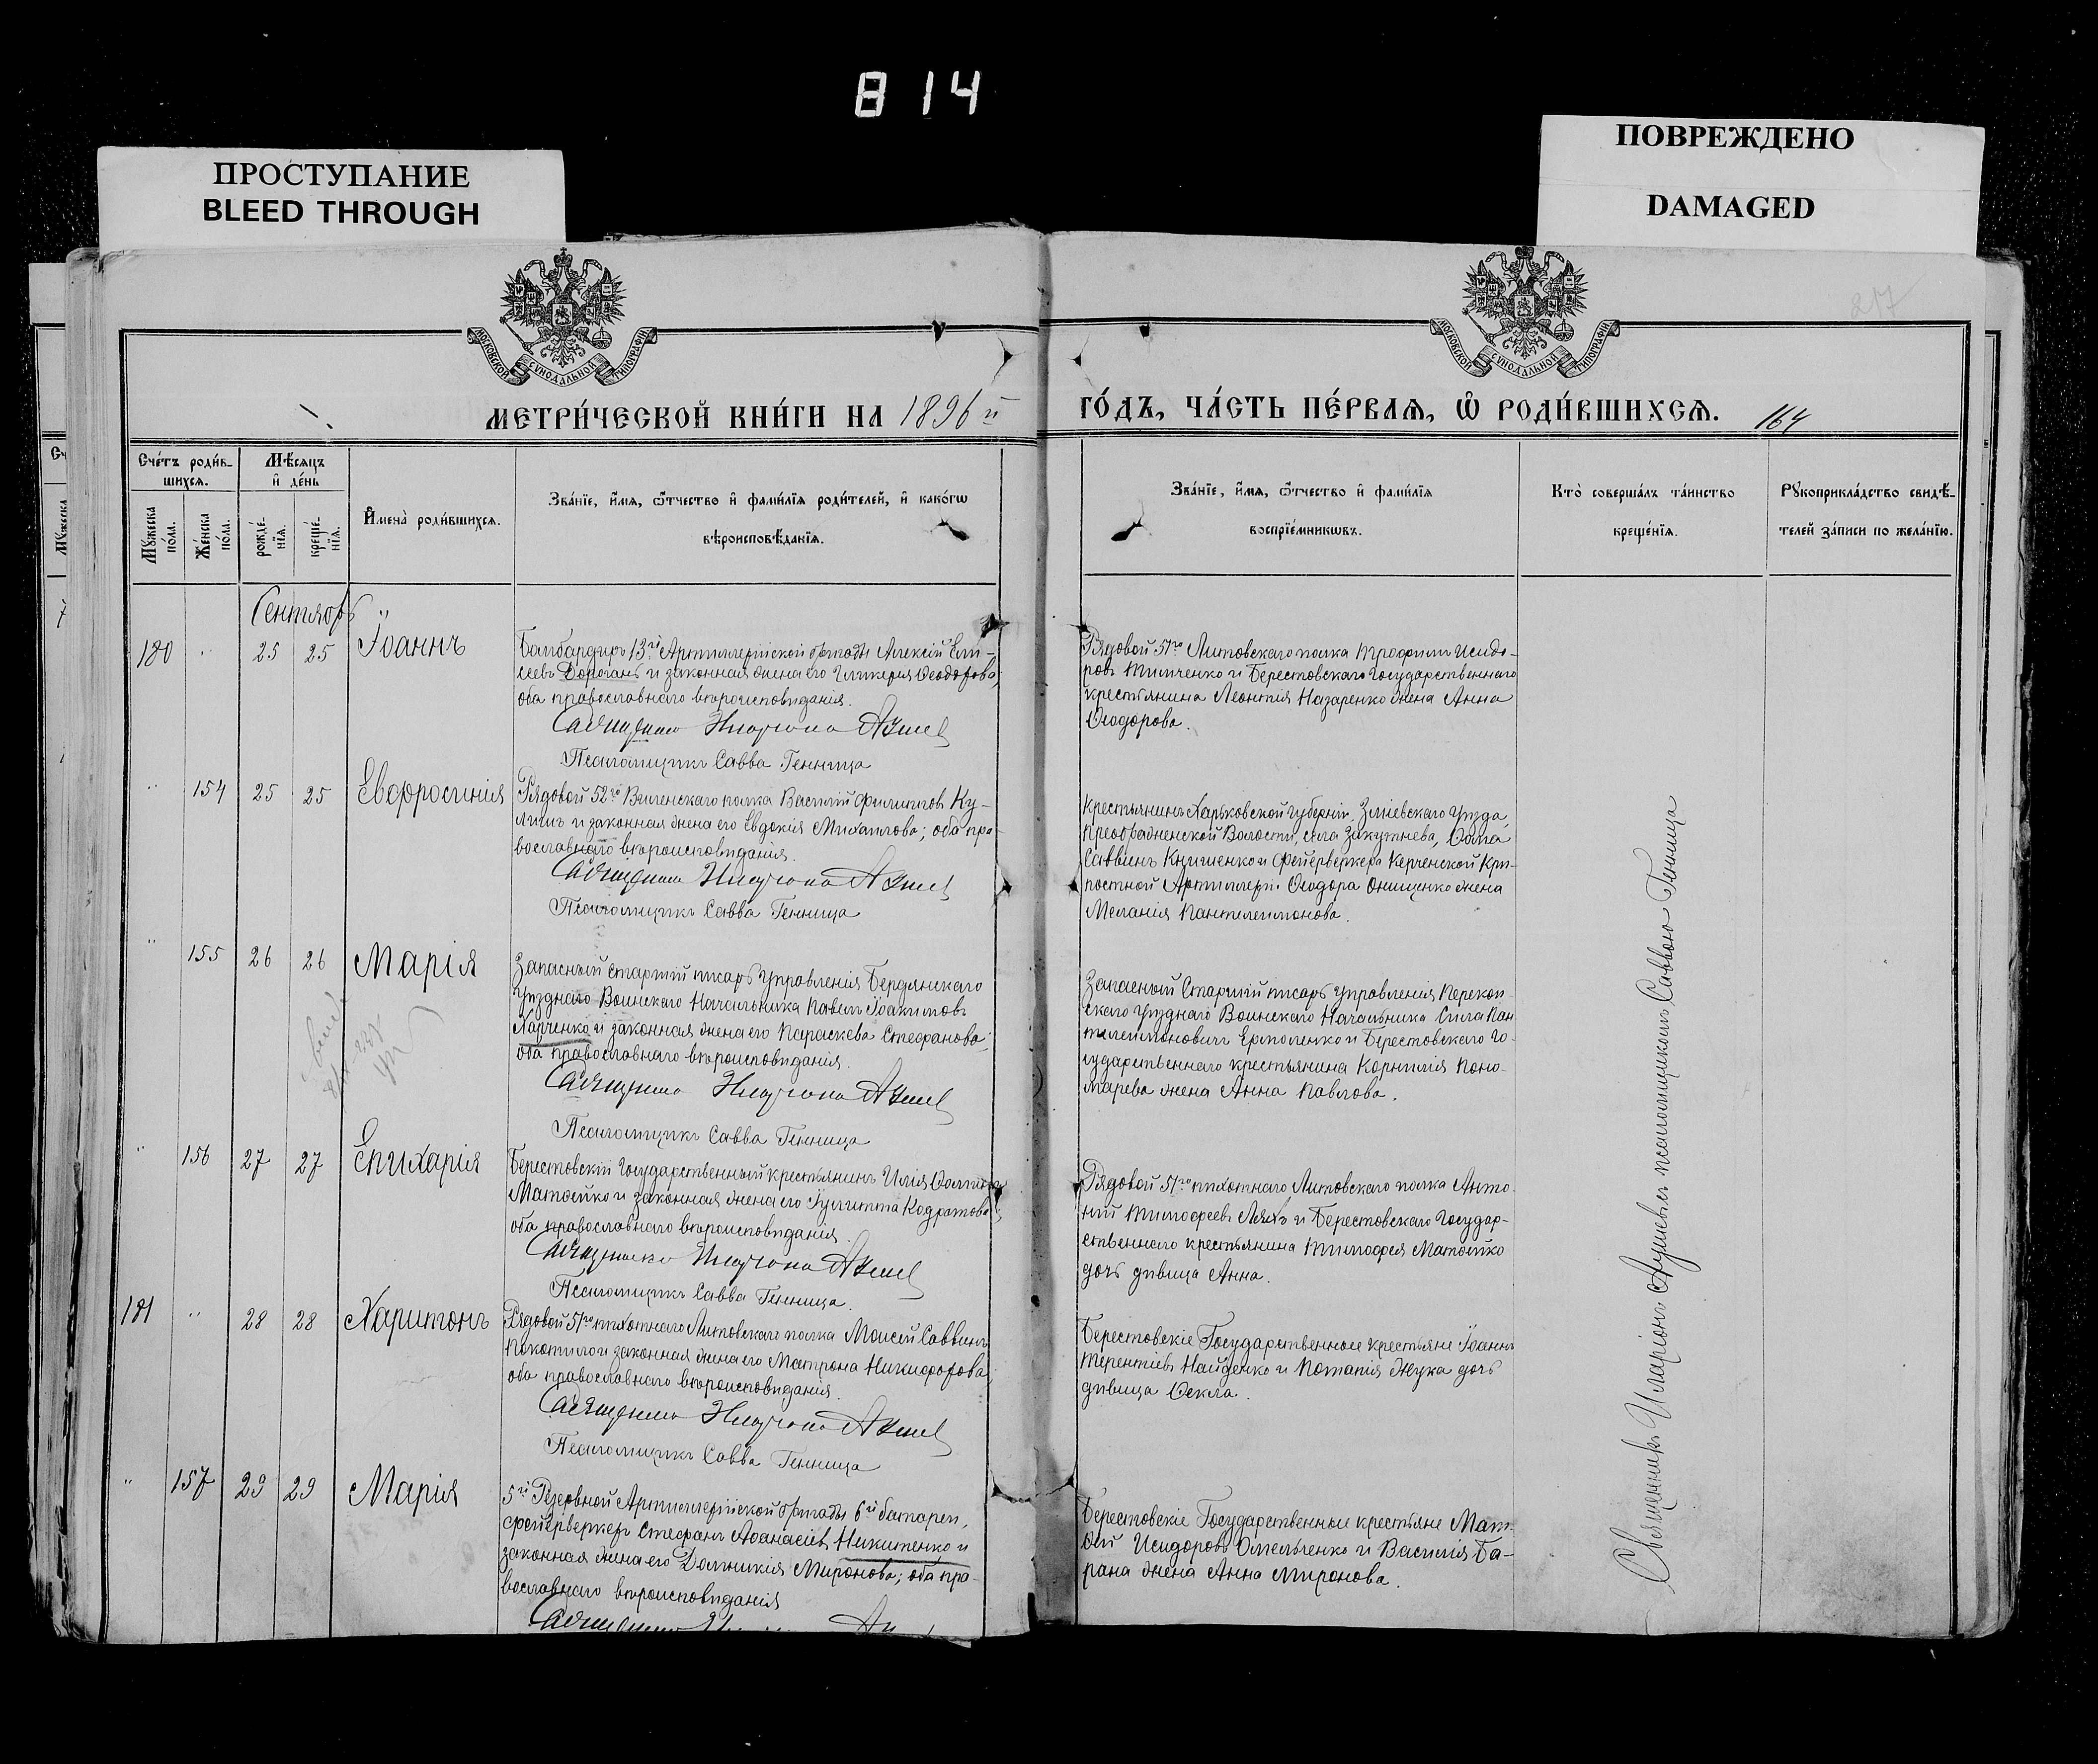 814
ПРОСТУПАНИЕ
BLEED THROUGH
ПОВРЕЖДЕНО
DAMAGED
МОСКОВСКОЙ СУНОДАЛЬНОЙ ТИПОГРАФІИ
МОСКОВСКОЙ СУНОДАЛЬНОЙ ТИПОГРАФІИ
217
МЕТРИ́ЧЕСКОЙ КНИ́ГИ НА 1896й
ГО́ДЪ, ЧА́СТЬ ПЕ́РВАѦ, Ѡ҆ РОДИ́ВШИХСѦ. 164
Сче́тъ роди́в-
шихсѧ.
Мꙋ́жеска по́ла.
Же́нска по́ла.
Мѣ́сѧцъ
и҆ де́нь
рожде́-
нїѧ.
креще́-
нїѧ.
И҆мена̀ роди́вшихсѧ.
Зва́нїе, и҆́мѧ, ѻ҆́тчество и҆ фамі́лїѧ роди́телей, и҆ како́гѡ
вѣроисповѣ́данїѧ.
Зва́нїе, и҆́мѧ, ѻ҆́тчество и҆ фамі́лїѧ
воспрїе́мникѡвъ.
Кто̀ соверша́лъ та́инство
креще́нїѧ.
Рꙋкоприкла́дство свидѣ́-
телей за́писи по жела́нїю.
Сентябрь
180 " 25 25 Іоаннъ
Бомбардиръ 13й Артиллерійской бригады Алексій Ели-
сеевъ Дороганъ и законная жена его Гликерія Ѳеодорова,
оба православнаго вѣроисповѣданія.
Священникъ Иларіонъ Ауневъ
Псаломщикъ Савва Генница
Рядовой 51го Литовскаго полка Трофимъ Исидо-
ровъ Тимченко и Берестовскаго Государственнаго
крестьянина Леонтія Назаренко жена Анна
Ѳеодорова.
" 154 25 25 Евфросинія
Рядовой 52го Виленскаго полка Василій Филипповъ Ку-
лишъ и законная жена его Евдокія Михаилова; оба пра-
вославнаго вѣроисповѣданія.
Священникъ Иларіонъ Ауневъ
Псаломщикъ Савва Генница
Крестьянинъ Харьковской Губерніи, Зміевскаго Уѣзда,
Преображенской Волости, села Закутнева, Ѳома
Саввинъ Книшенко и Фейерверкера Керченской Крѣ-
постной Артиллеріи Ѳеодора Онищенко жена
Меланія Пантелеимонова.
" 155 26 26 Марія
Запасный старшій писарь Управленія Бердянскаго
Уѣзднаго Воинскаго Начальника Павелъ Іоакимовъ
Харченко и законная жена его Параскева Стефанова,
оба православнаго вѣроисповѣданія.
Священникъ Иларіонъ Ауневъ
Псаломщикъ Савва Генница
Запасный Старшій писарь Управленія Перекоп-
скаго Уѣзднаго Воинскаго Начальника Сила Пан
телеимоновичъ Ермоленко и Берестовскаго Го-
сударственнаго крестьянина Корнилія Поно-
марева жена Анна Павлова.
" 156 27 27 Епихарія
Берестовскій Государственный крестьянинъ Илія Ѳоминъ
Матвейко и законная жена его Іулитта Кодратова;
оба православнаго вѣроисповѣданія.
Священникъ Иларіонъ Ауневъ
Псаломщикъ Савва Генница.
Рядовой 51го пѣхотнаго Литовскаго полка Анто-
ній Тимофеевъ Ляхъ и Берестовскаго Государ-
ственнаго крестьянина Тимофея Матвейко
дочь дѣвица Анна.
181 " 28 28 Харитонъ
Рядовой 51го пѣхотнаго Литовскаго полка Моисей Саввинъ
Покотило и законная жена его Матрона Никифорова,
оба православнаго вѣроисповѣданія.
Священникъ Иларіонъ Ауневъ
Псаломщикъ Савва Генница
Берестовскіе Государственные крестьяне Іоаннъ
Терентіевъ Найденко и Потапія Жука дочь
дѣвица Ѳекла.
" 157 29 29 Марія
5й Резервной Артиллерійской бригады 6й батареи,
фейерверкеръ Стефанъ Аѳанасіевъ Никитенко и
законная жена его Домникія Миронова; оба пра-
вославнаго вѣроисповѣданія
Берестовскіе Государственные крестьяне Мат-
ѳей Исидоровъ Омельченко и Василія Ба-
рана жена Анна Миронова.
Священникъ Иларіонъ Ауневъ съ псаломщикомъ Саввою Генница